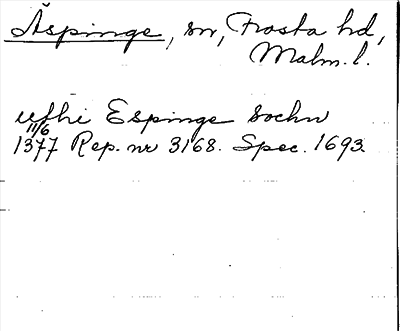 Äspinge, sn, Frosta hd,
Malm. l.
uthi Espinge sochn
11/6
1377 Rep. nr 3168. Spec. 1693